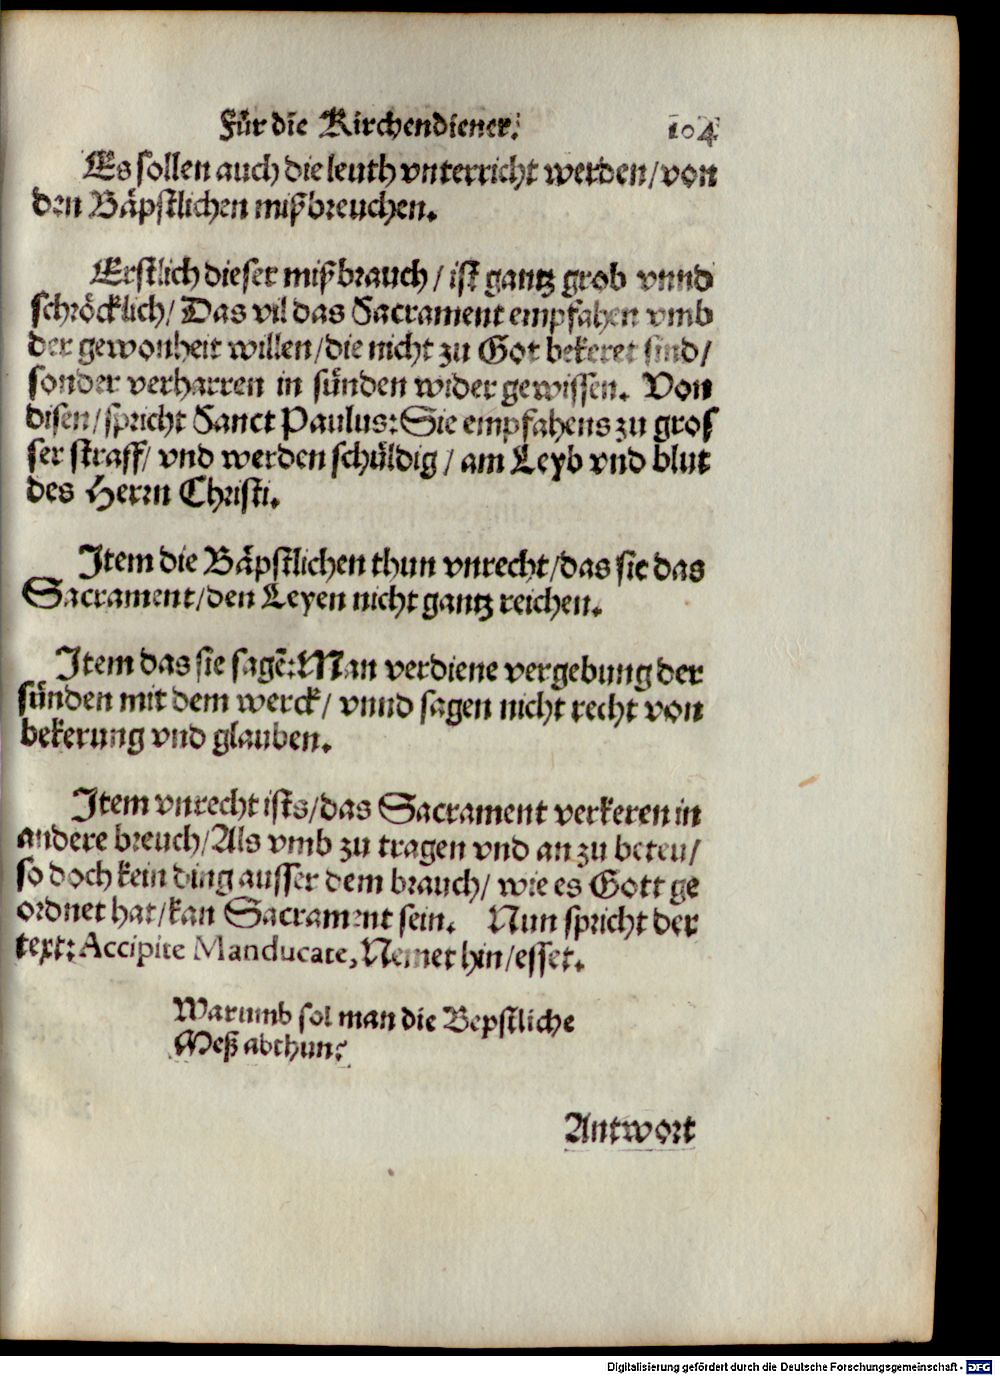 Für die Kirchendiener. 104
Es sollen auch die leuth vnterricht werden/von
den Bäpstlichen mißbreuchen.
Erstlich dieser mißbrauch/ ist gantz grob vnnd
schröcklich/ Das vil das Sacrament empfahen vmb
der gewonheit willen/die nicht zu Got bekeret sind/
sonder verharren in sünden wider gewissen. Von
disen/spricht Sanct Paulus: Sie empfahens zu gros
ser straff/ vnd werden schüldig/ am Leyb vnd blut
des Herrn Christi.
Item die Bäpstlichen thun vnrecht/das sie das
Sacrament/den Leyen nicht gantz reichen.
Item das sie sagē: Man verdiene vergebung der
sünden mit dem werck/ vnnd sagen nicht recht von
bekerung vnd glauben.
Item vnrecht ists/das Sacrament verkeren in
andere breuch/Als vmb zu tragen vnd an zu beten/
so doch kein ding ausser dem brauch/ wie es Gott ge
ordnet hat/kan Sacrament sein. Nun spricht der
text: Accipite Manducate, Nemet hin/esset.
Warumb sol man die Bepstliche
Meß abthun?
Antwort
Digitalisierung gefördert durch die Deutsche Forschungsgemeinschaft - DFG